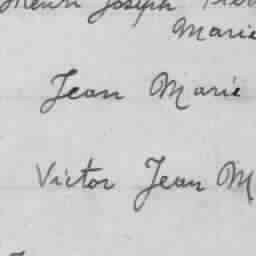 Henri Joseph
Marie
Jean Marie
Victor Jean M